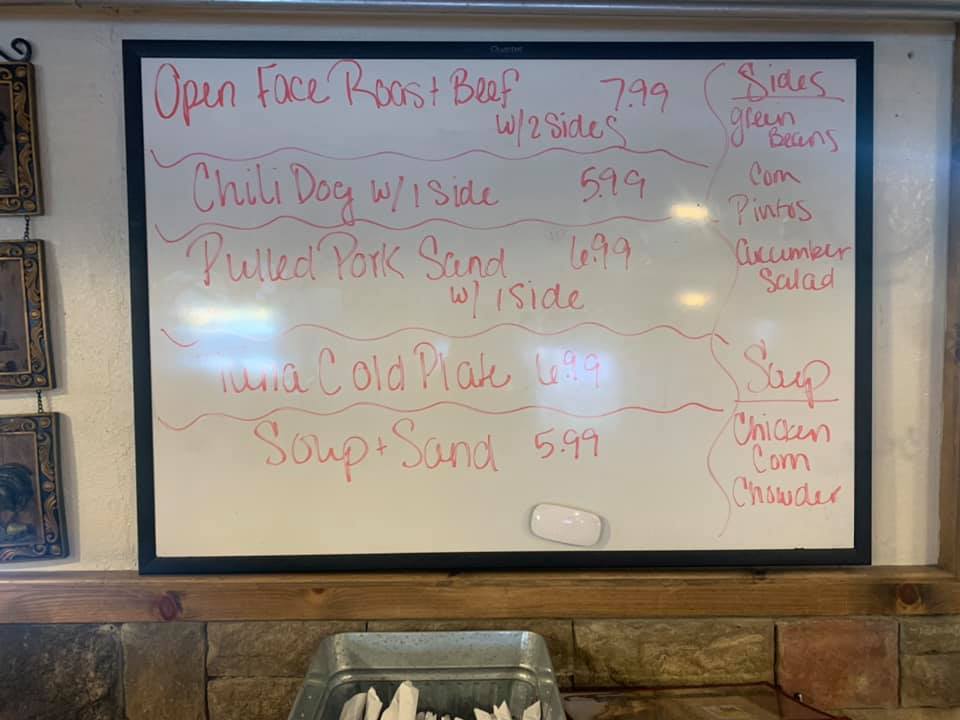 Quartet
Open Face Roast Beef 7.99
w/2 sides
Chili Dog w/1 side 5.99
Pulled Pork Sand 6.99
w/ 1 side
Tuna Cold Plate 6.99
Soup + Sand 5.99
Sides
green
Beans
Corn
Pintos
Cucumber
Salad
Soup
Chicken
Corn
Chowder